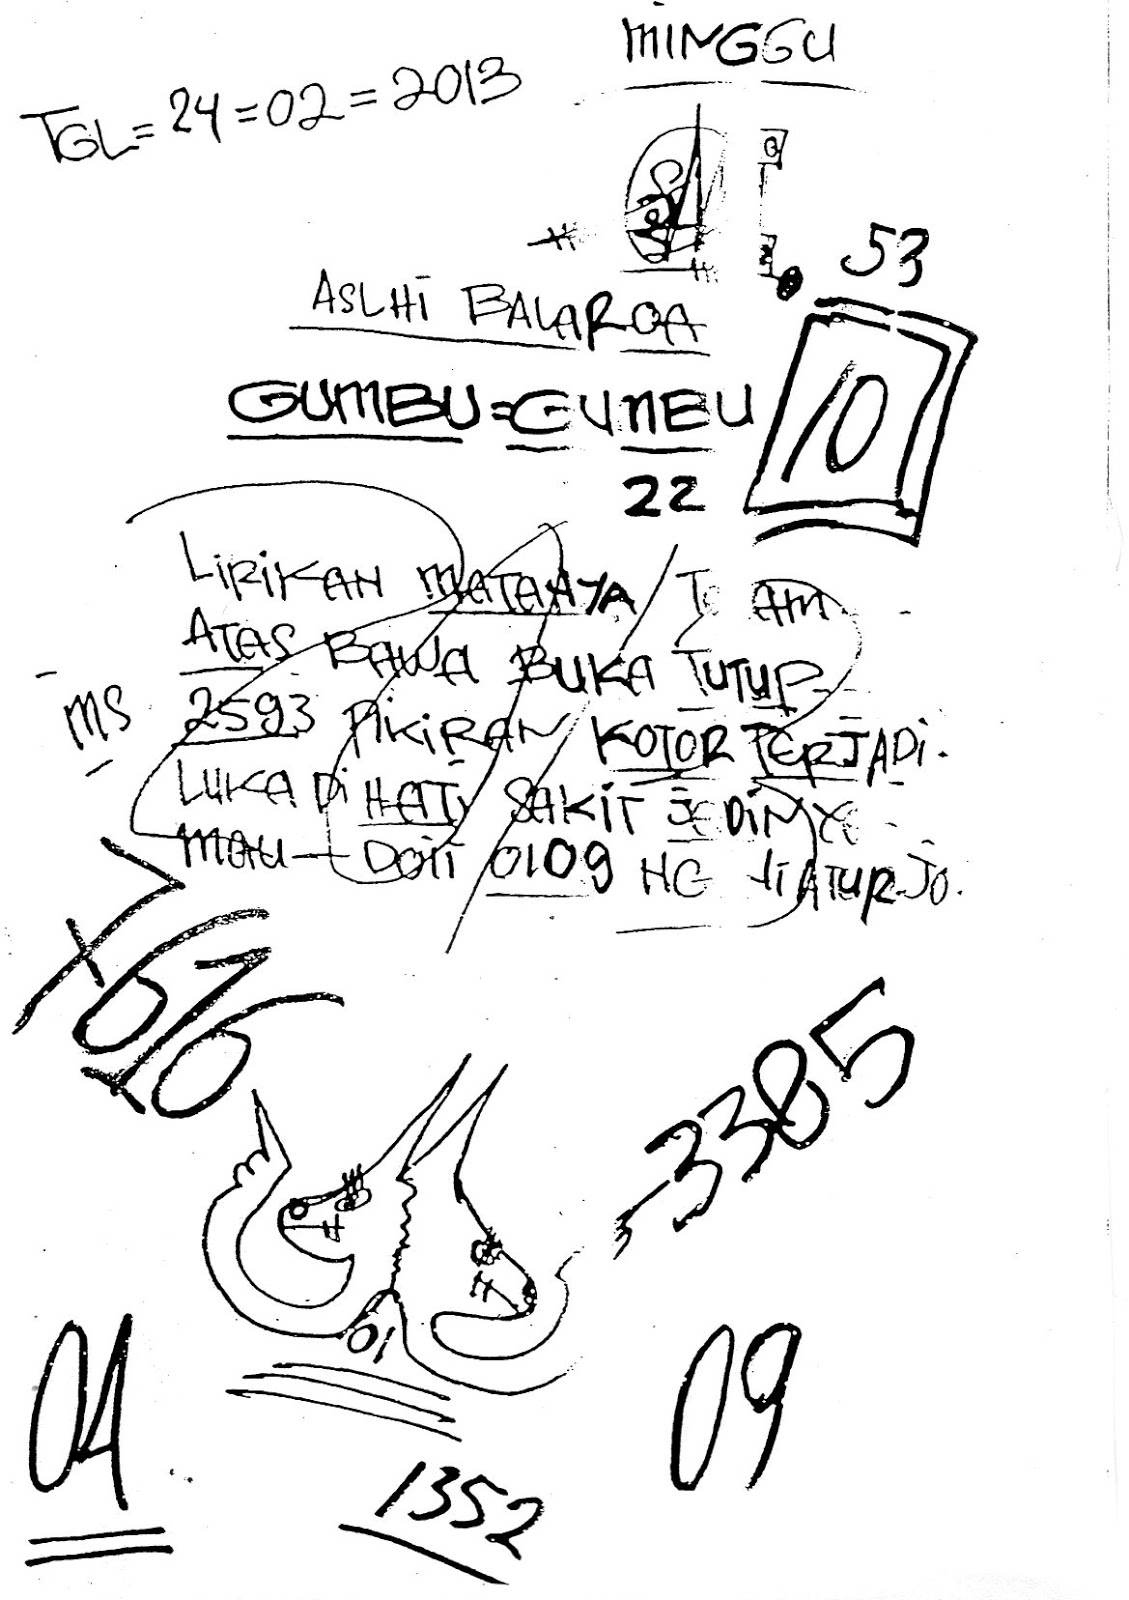 MINGGU
TGL = 24 = 02 = 2013
53
ASLHI BALAROA
10
GUMBU = GUMBU
22
LIRIKAN MATANYA
ATAS BAWA BUKA TUTUP
MS 2593 PIKIRAN KOTOR TERJADI.
LUKA DI HATI SAKIT
MAU DOTI 0109 HG
3385
01
04
09
1352